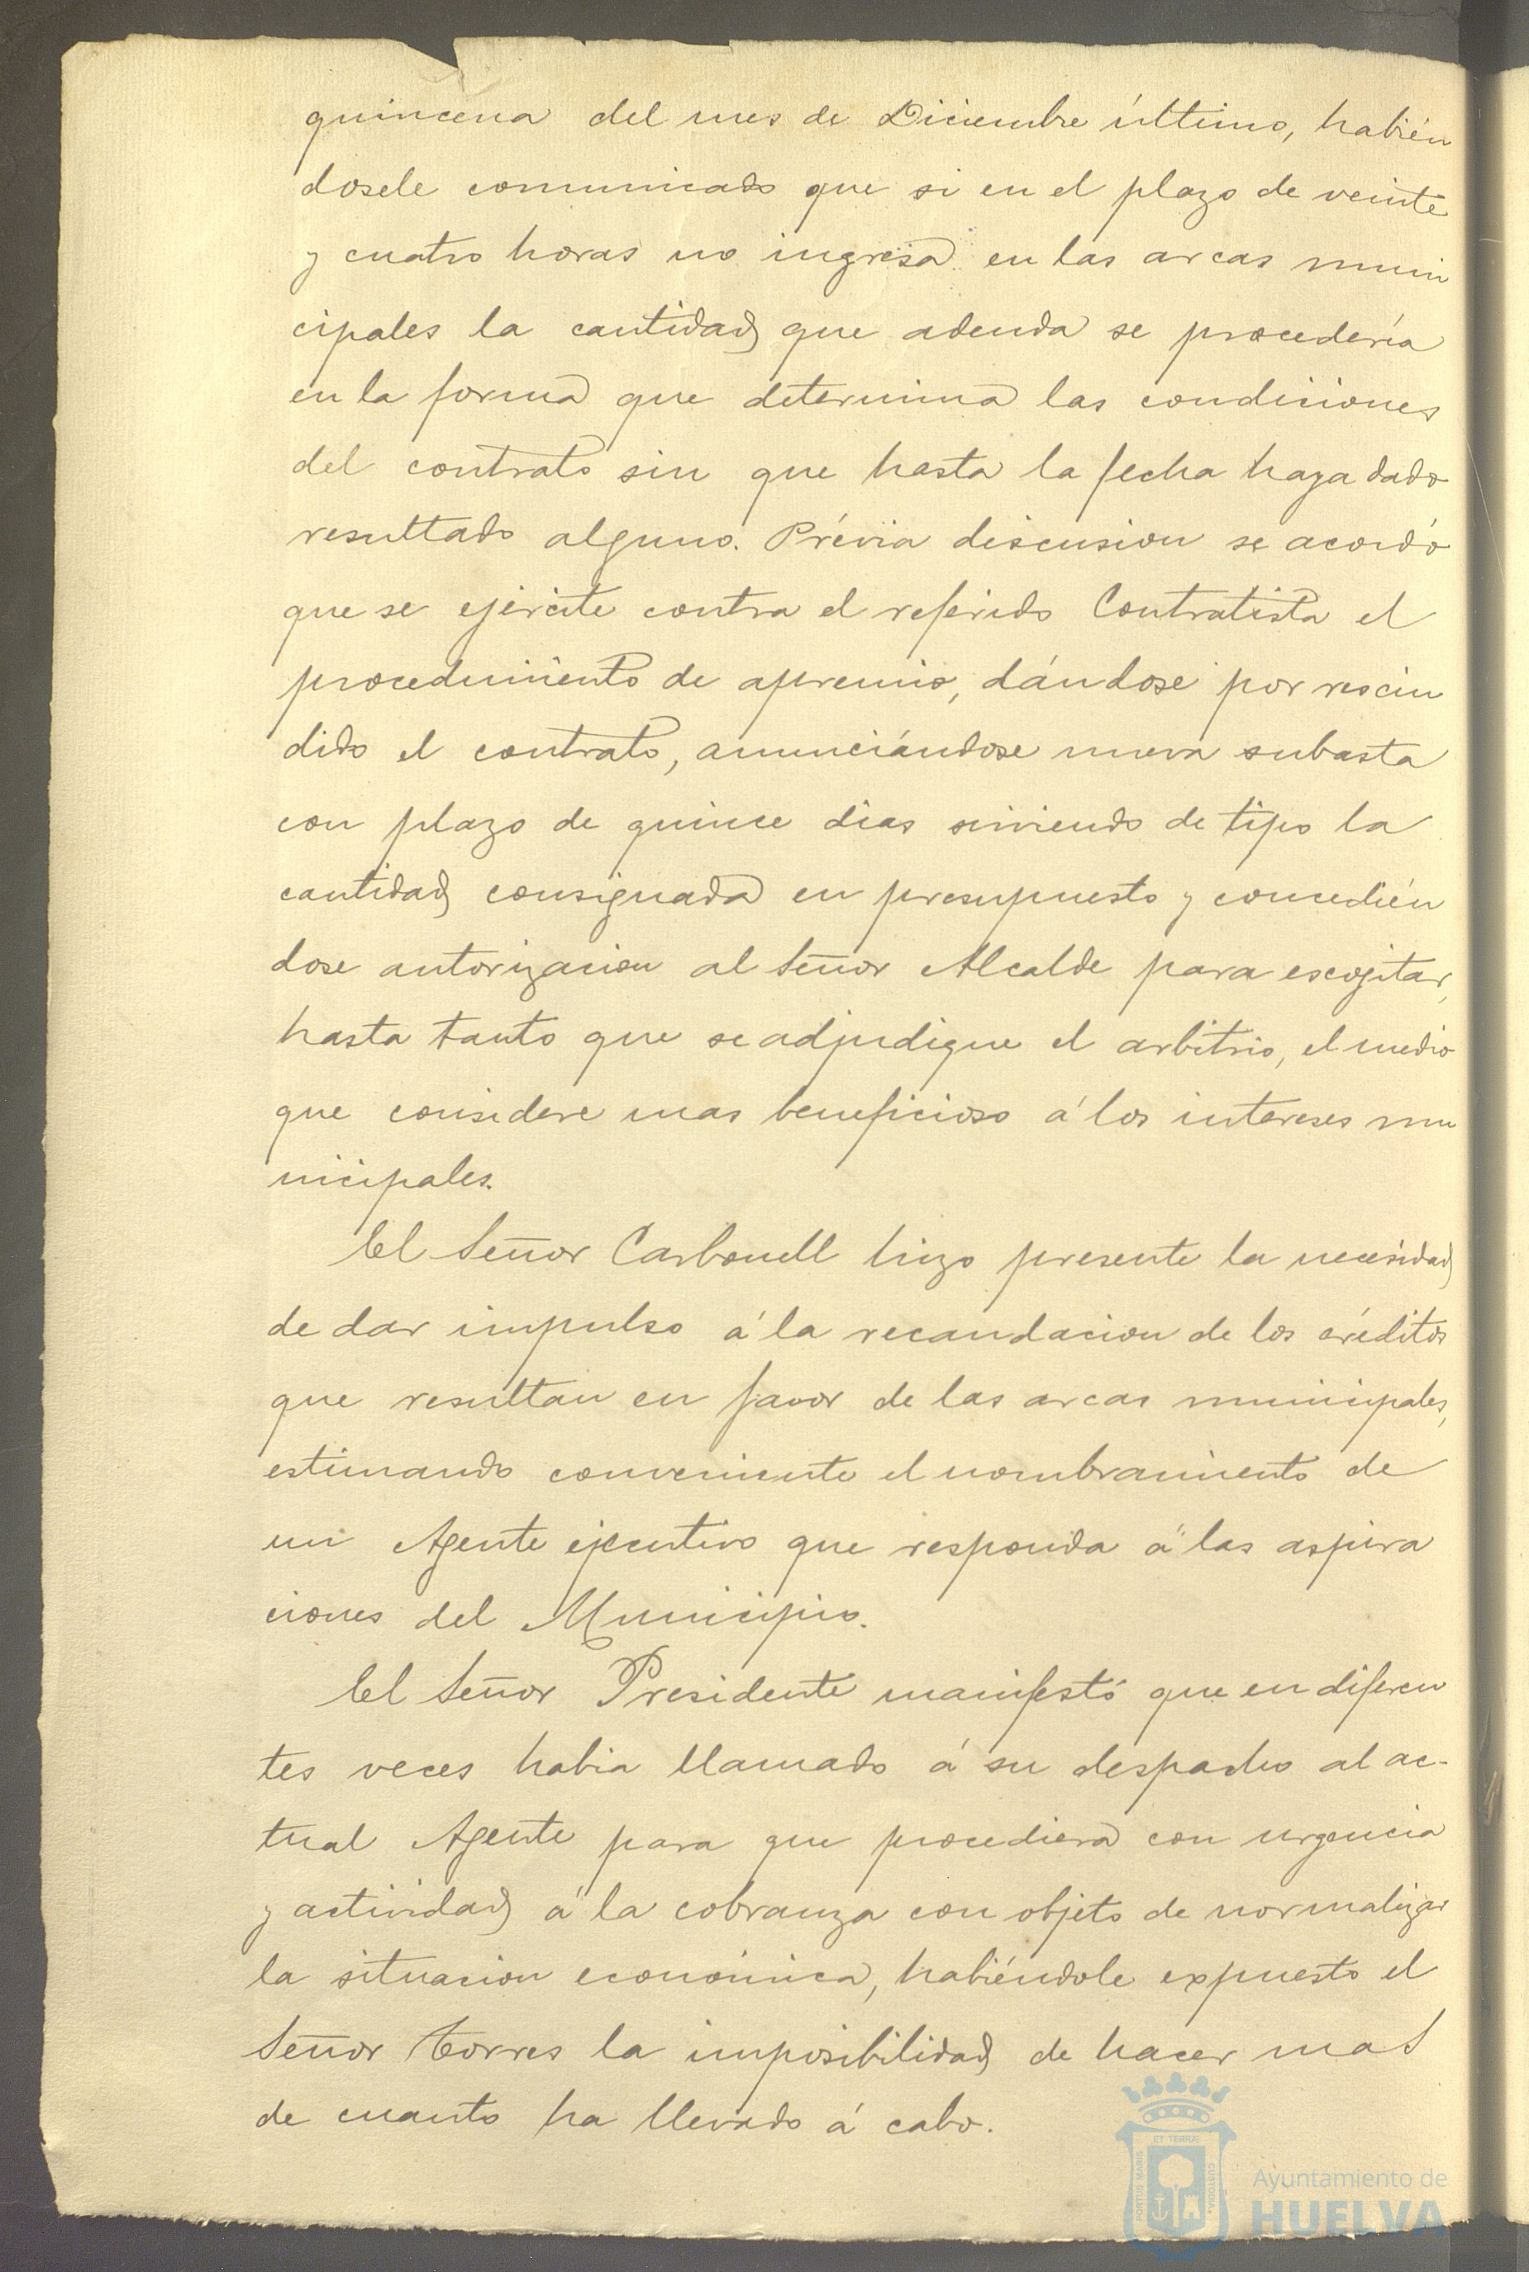 quincena del mes de Diciembre último, habién
dosele comunicado que si en el plazo de veinte
y cuatro horas no ingresa en las arcas muni
cipales la cantidad que adeuda se procedería
en la forma que determina las condiciones
del contrato sin que hasta la fecha haya dado
resultado alguno. Prévia discusion se acordó
que se ejercite contra el referido Contratista el
procedimiento de apremio, dándose por rescin
dido el contrato, anunciándose nueva subasta
con plazo de quince dias sirviendo de tipo la
cantidad consignada en presupuesto y concedién
dose autorizacion al Señor Alcalde para escogitar,
hasta tanto que se adjudique el arbitrio, el medio
que considere mas beneficioso á los intereses mu
nicipales.
El Señor Carbonell hizo presente la necesidad
de dar impulso á la recaudacion de los créditos
que resultan en favor de las arcas municipales,
estimando conveniente el nombramiento de
un Agente ejecutivo que responda á las aspira
ciones del Municipio.
El Señor Presidente manifestó que en diferen
tes veces habia llamado á su despacho al ac-
tual Agente para que procediera con urgencia
y actividad á la cobranza con objeto de normalizar
la situacion económica, habiéndole expuesto el
Señor Torres la imposibilidad de hacer mas
de cuanto ha llevado á cabo.
PORTUS MARIS ET TERRAE CUSTODIA
Ayuntamiento de
HUELVA